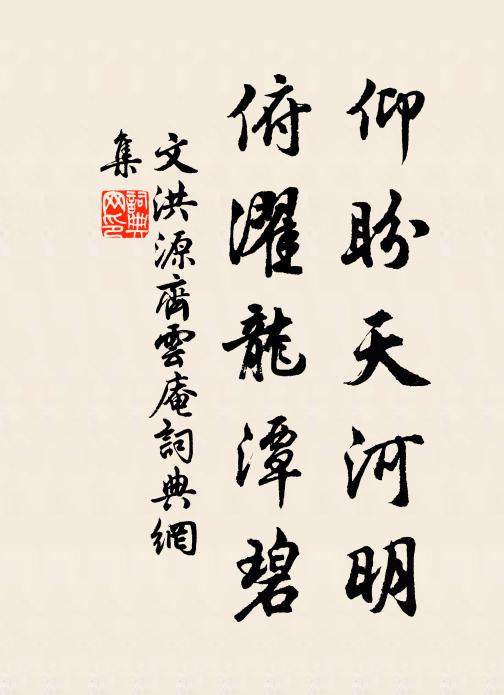 仰盼天河明
俯濯龍潭碧
文洪源齊雲庵詞典網
集
詞典網印